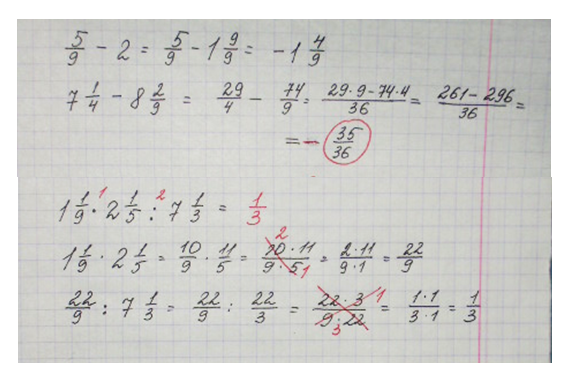 5/9 - 2 = 5/9 - 1 9/9 = -1 4/9
7 1/4 - 8 2/9 = 29/4 - 74/9 = 29·9-74·4/36 = 261-296/36 =
= - 35/36
1 1/9 · 2 1/5 : 7 1/3 = 1/3
1 1/9 · 2 1/5 = 10/9 · 11/5 = 10·11/9·5 = 2·11/9·1 = 22/9
22/9 : 7 1/3 = 22/9 : 22/3 = 22·3/9·22 = 1·1/3·1 = 1/3